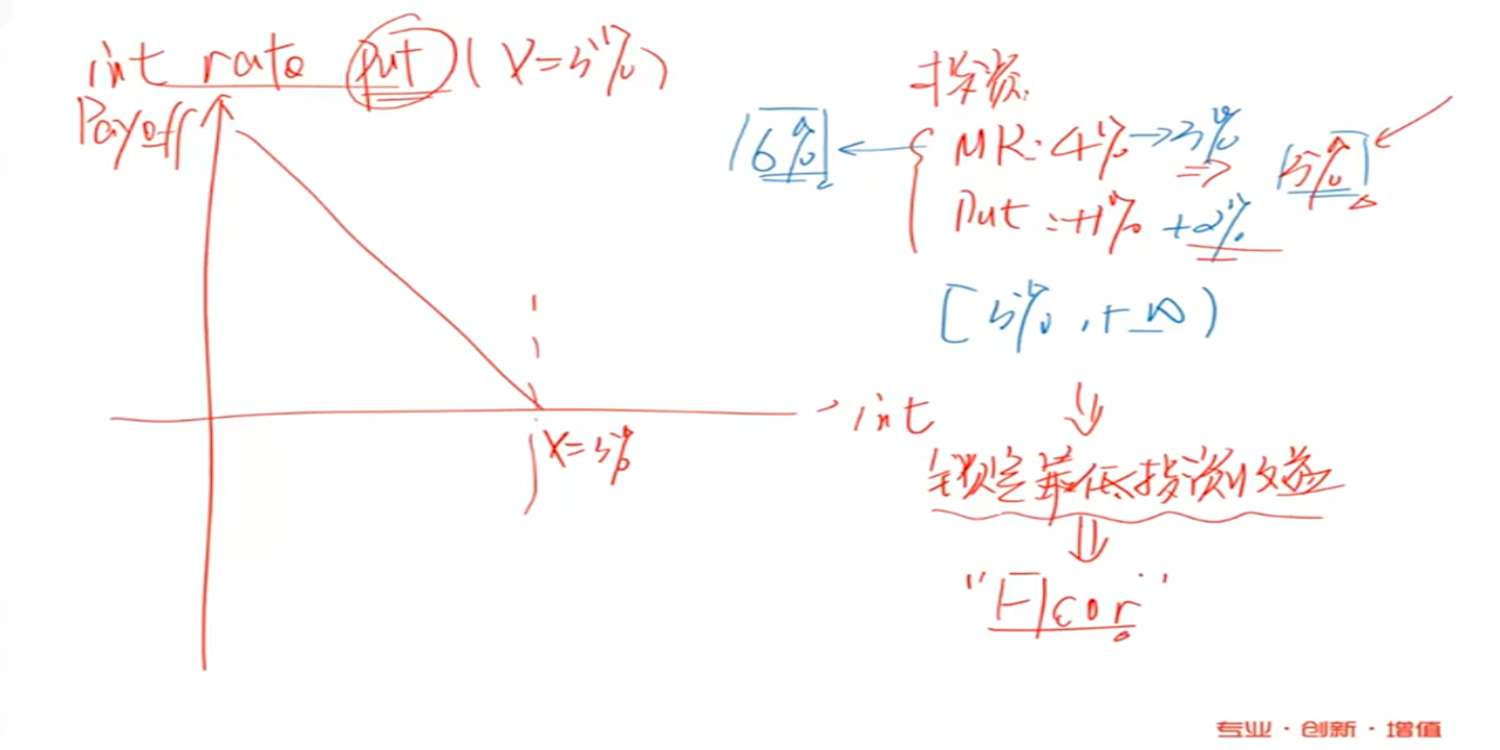 int rate put (X=5%)
Payoff
int
X=5%
投资:
6%
MR: 4% → 3% ⇒ 5%
Put: +1% +2%
[5%, +∞)
锁定最低投资收益
"Floor"
专业·创新·增值